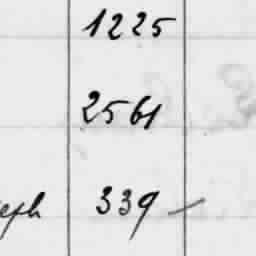 1225
2561
eph 339 –